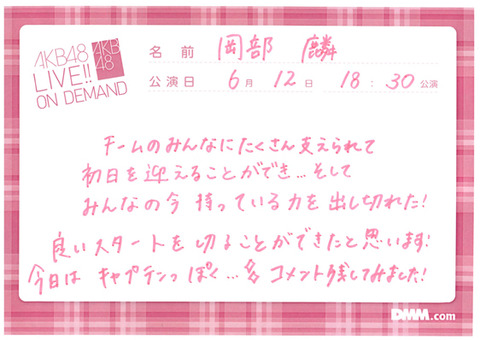 AKB48
LIVE!!
ON DEMAND
AKB
48
名前 岡部 麟
公演日 6月 12日 18:30公演
チームのみんなにたくさん支えられて
初日を迎えることができ...そして
みんなの今 持っている力を出し切れた!
良いスタートを切ることができたと思います!
今日は キャプテンっぽく... コメント残してみました!
DMM.com